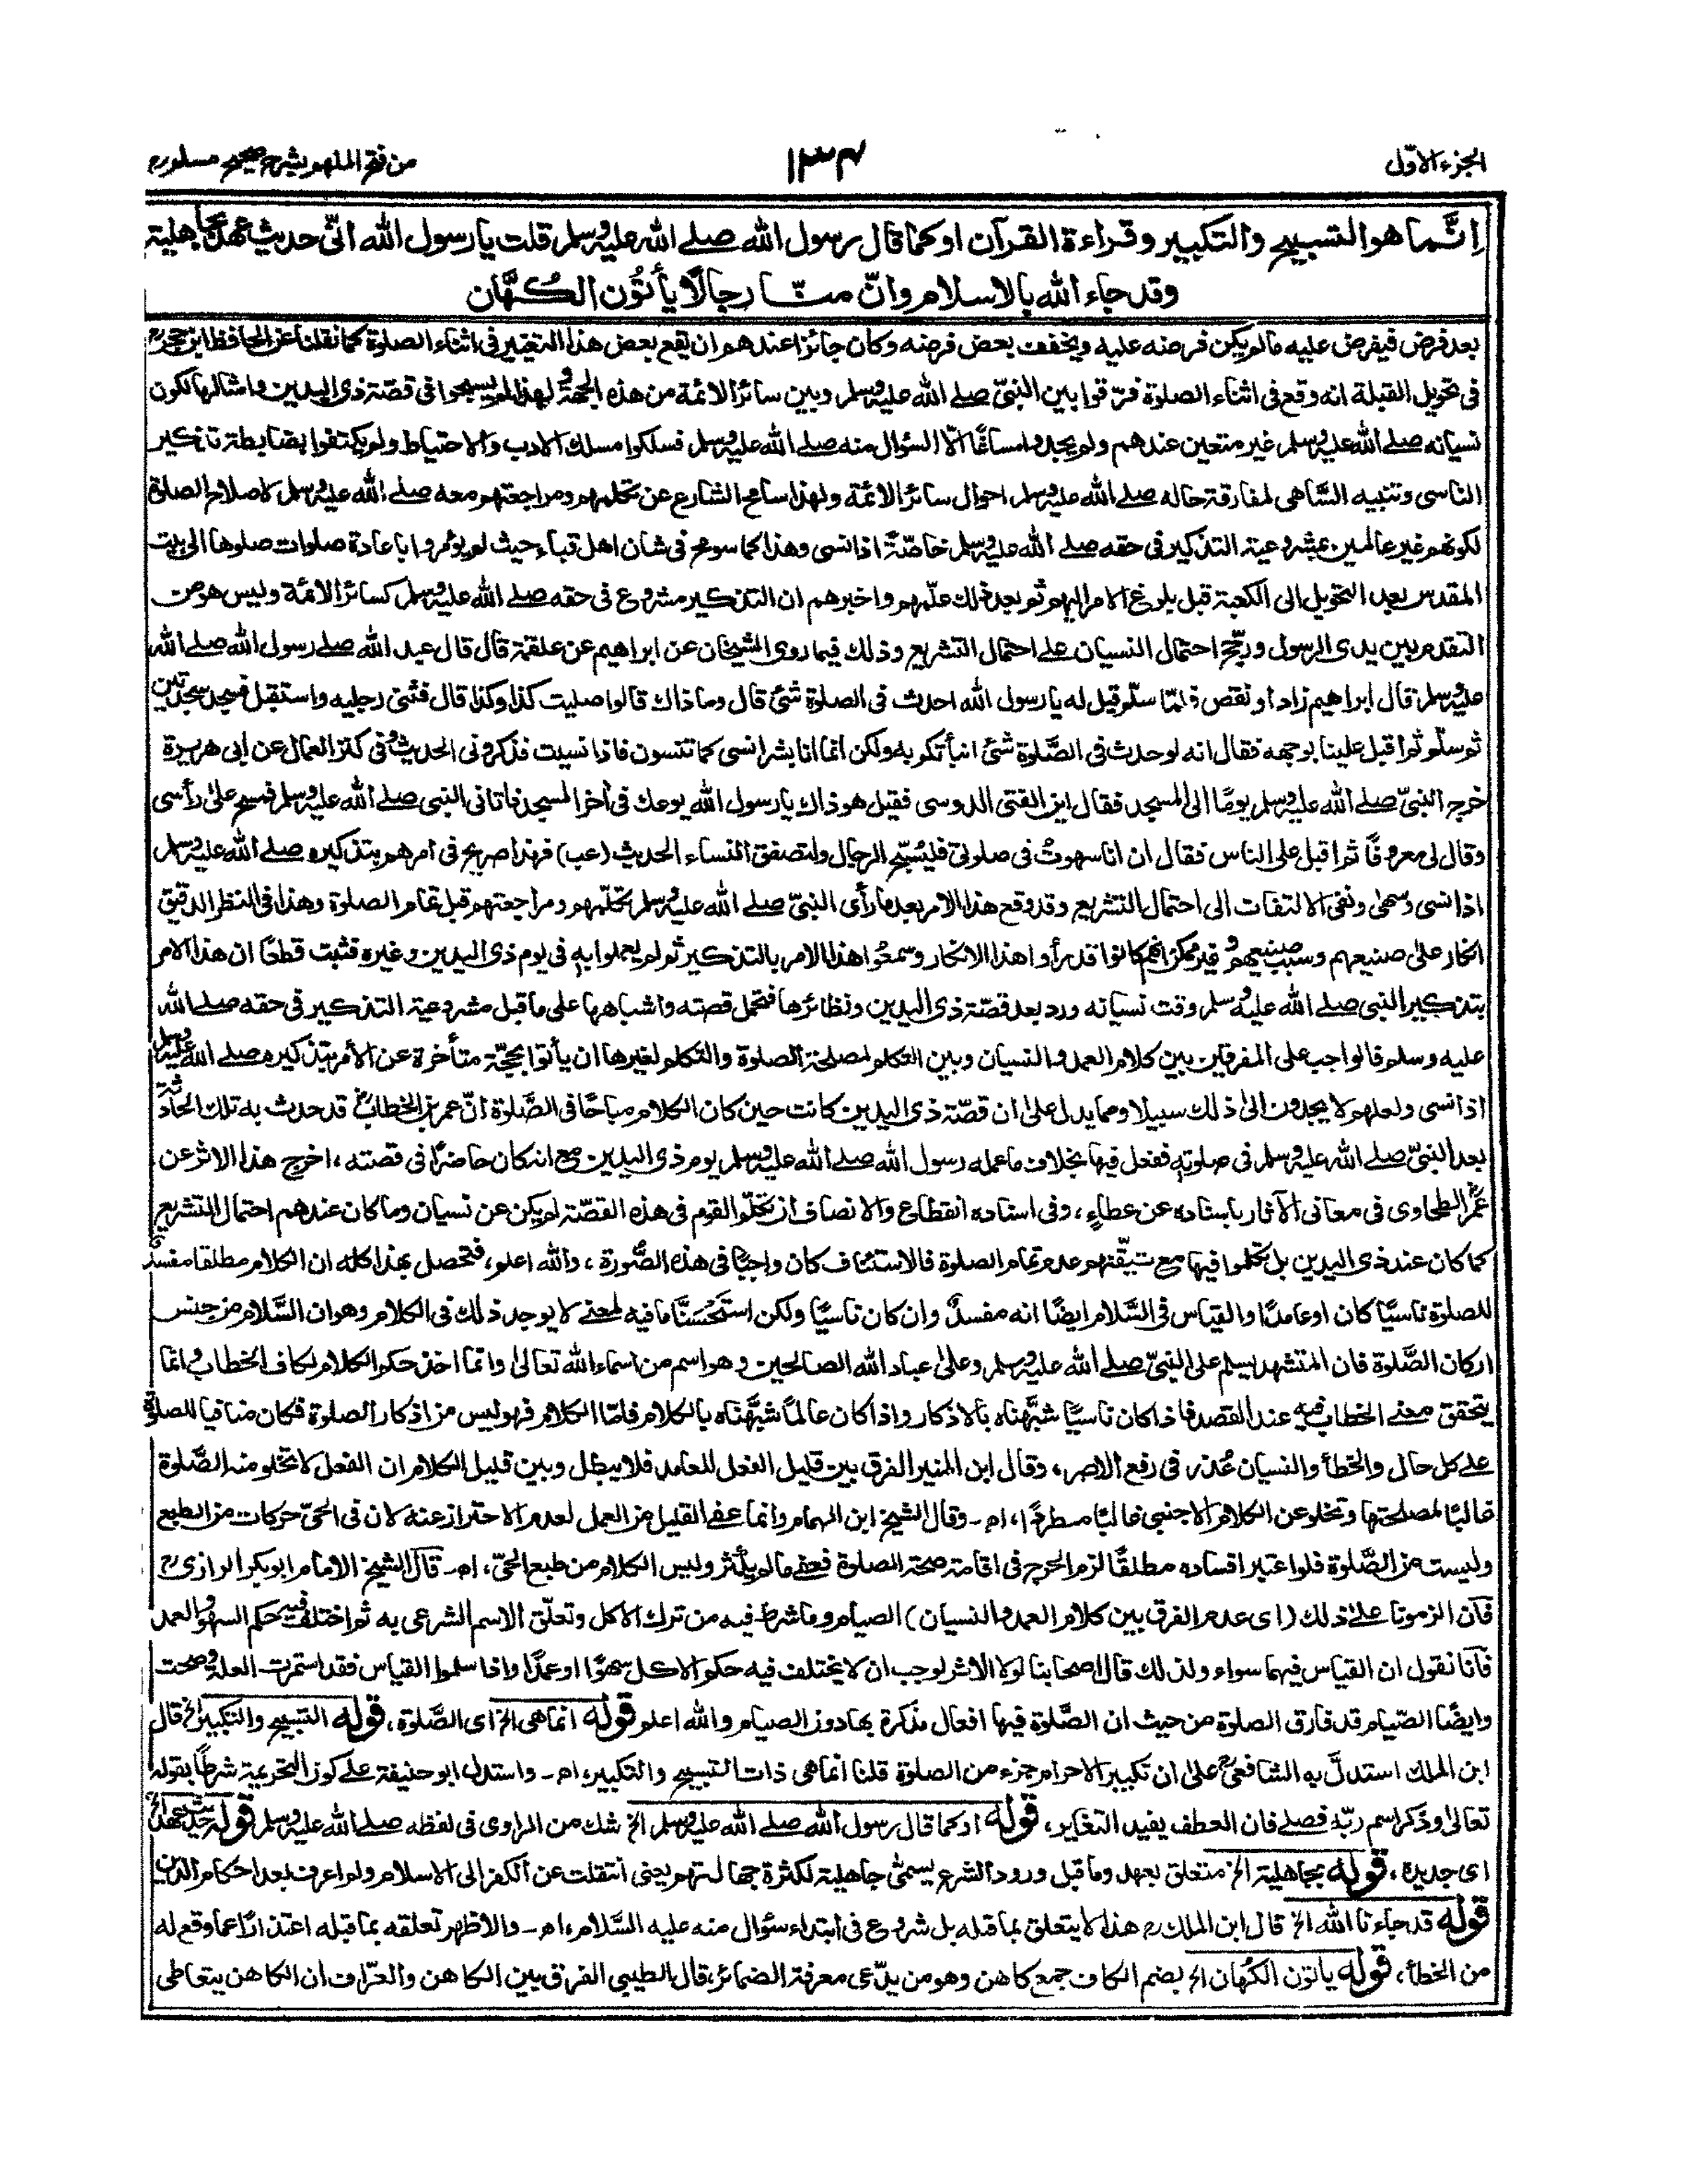 الجزء الاوّل
١٣٤
من فتح الملهم بشرح صحيح مسلم ٢
اِنَّما هو التسبيح والتكبير وقراءة القرآن او كما قال رسول الله صلى الله عليه وسلم قلت يا رسول الله انّى حديث عهد بجاهلية
وقد جاء الله بالاسلام وانّ منّا رجالًا يأتُون الكُهَّان
بعد فرض فيفرض عليه ما لم يكن فرضه عليه ويخفف بعض فرضه وكان جائزا عندهم ان يقع بعض هذا التغيير فى اثناء الصلوة كما نقلنا عن الحافظ ابن حجرؒ
فى تحويل القبلة انه وقع فى اثناء الصلوة فرّقوا بين النبىّ صلے الله عليه وسلم وبين سائر الائمة من هذه الجهة ولهذا لم يسبحوا فى قصّة ذى اليدين وامثالها لكون
نسيانه صلے الله عليه وسلم غير متعين عندهم ولم يجدوا مساغًا الّا السؤال منه صلے الله عليه وسلم فسلكوا مسلك الادب والاحتياط ولم يكتفوا بضابطة تذكير
الناسى وتنبيه السَّاهى لمفارقة حاله صلے الله عليه وسلم احوال سائر الائمة ولهذا سامح الشارع عن تكلمهم ومراجعتهم معه صلے الله عليه وسلم لاصلاح الصلوة
لكونهم غير عالمين بمشروعية التذكير فى حقه صلے الله عليه وسلم خاصّةً اذا نسى وهذا كما سومح فى شان اهل قباء حيث لم يؤمروا باعادة صلوات صلوها الى بيت
المقدس بعد التحويل الى الكعبة قبل بلوغ الامر اليهم ثم بعد ذلك علّمهم واخبرهم ان التذكير مشروع فى حقه صلے الله عليه وسلم كسائر الائمة وليس هو من
التقدم بين يدى الرسول ورجّح احتمال النسيان على احتمال التشريع وذلك فيما روى الشيخان عن ابراهيم عن علقمة قال قال عبد الله صلے رسول الله صلے الله
عليه وسلم قال ابراهيم زاد او نقص فلمّا سلّم قيل له يا رسول الله احدث فى الصلوة شئ قال وما ذاك قالوا صليت كذا وكذا قال فثنى رجليه واستقبل فسجد سجدتين
ثم سلّم ثم اقبل علينا بوجهه فقال انه لو حدث فى الصَّلوة شئ انبأتكم به ولكن انما انا بشر انسى كما تنسون فاذا نسيت فذكرونى الحديث وفى كنز العمال عن ابى هريرة
خرج النبىّ صلے الله عليه وسلم يومًا الى المسجد فقال اين الفتى الدوسى فقيل هو ذاك يا رسول الله يوعك فى اخر المسجد فاتانى النبى صلے الله عليه وسلم فمسح على رأسى
وقال لى معروفًا ثم اقبل على الناس فقال ان انا سهوتُ فى صلوتى فليُسَبّح الرجال ولتصفق النساء الحديث (عب) فهذا صريح فى امرهم بتذكيره صلے الله عليه وسلم
اذا نسى وسهىٰ ونفى الالتفات الى احتمال التشريع وقد وقع هذا الامر بعد ما رأى النبىّ صلے الله عليه وسلم تكلّمهم ومراجعتهم قبل تمام الصلوة وهذا فى النظر الدقيق
انكار علىٰ صنيعهم وسبب صنيعهم وغير ممكن انهم كانوا قد رأوا هذا الانكار وسمعُوا هذا الامر بالتذكير ثم لم يعملوا به فى يوم ذى اليدين وغيره فثبت قطعًا ان هذا الامر
بتذكير النبى صلے الله عليه وسلم وقت نسيانه ورد بعد قصّة ذى اليدين ونظائرها فتحمل قصته واشباهها على ما قبل مشروعية التذكير فى حقه صلے الله
عليه وسلم فالواجب على المفرقين بين كلام العمد والنسيان وبين التكلم لمصلحة الصلوة والتكلم لغيرها ان يأتوا بحجّة متأخرة عن الأمر بتذكيره صلے الله عليه وسلم
اذا نسى ولعلهم لا يجدون الىٰ ذلك سبيلا ومما يدل علىٰ ان قصّة ذى اليدين كانت حين كان الكلام مباحًا فى الصَّلوة انّ عمر بن الخطابؓ قد حدث به تلك الحادثة
بعد النبىّ صلے الله عليه وسلم فى صلوته ففعل فيها بخلاف ما عمله رسول الله صلے الله عليه وسلم يوم ذى اليدين مع انه كان حاضرًا فى قصته ، اخرج هذا الاثر عن
عمرؓ الطحاوى فى معانى الآثار باسناده عن عطاءٍ ، وفى اسناده انقطاع والانصاف ان تكلّم القوم فى هذه القصّة لم يكن عن نسيان وما كان عندهم احتمال التشريع
كما كان عند ذى اليدين بل تكلموا فيها مع تيقّنهم عدم تمام الصلوة فالاستئناف كان واجبًا فى هذه الصُّورة ، والله اعلم ، فتحصل بهذا كله ان الكلام مطلقا مفسدٌ
للصلوة ناسيًا كان او عامدًا والقياس فى السَّلام ايضًا انه مفسدٌ وان كان ناسيًا ولكن استَحْسَنَّا ما فيه لمعنى لا يوجد ذلك فى الكلام وهو ان السَّلام من جنس
اركان الصَّلوة فان المتشهد يسلم على النبىّ صلے الله عليه وسلم وعلىٰ عباد الله الصالحين وهو اسم من اسماء الله تعالىٰ وانما اخذ حكم الكلام لكاف الخطاب وانما
يتحقق معنى الخطاب فيه عند القصد فاذا كان ناسيًا شبّهناه بالاذكار واذا كان عالمًا شبّهناه بالكلام فامّا الكلام فهو ليس من اذكار الصلوة فكان منافيا للصلوة
علے كل حال والخطأ والنسيان عُذر فى رفع الاصر ، وقال ابن المنير الفرق بين قليل الفعل للعامد فلا يبطل وبين قليل الكلام ان الفعل لا تخلو منه الصَّلوة
غالبًا لمصلحتها وتخلو عن الكلام الاجنبى غالبًا مطردًا ، ام۔ وقال الشيخ ابن الهمام وانما عفى القليل من العمل لعدم الاحتراز عنه لان فى الحىّ حركات من الطبع
وليست من الصَّلوة فلو اعتبر افساده مطلقًا لزم الحرج فى اقامة صحة الصلوة فعفى ما لم يكثر وليس الكلام من طبع الحىّ ، ام۔ قال الشيخ الامام ابو بكر الرازىؒ
فان الزمونا علىٰ ذلك (اى عدم الفرق بين كلام العمد والنسيان) الصيام وما شرط فيه من ترك الاكل وتعلّق الاسم الشرعى به ثم اختلف فيه حكم السهو والعمد
فانا نقول ان القياس فيهما سواء ولذلك قال اصحابنا لولا الاثر لوجب ان لا يختلف فيه حكم الاكل سهوًا او عمدًا واذا سلموا القياس فقد استمرت العلة وصحت
وايضًا الصّيام قد فارق الصلوة من حيث ان الصَّلوة فيها افعال مذكرة بها دون الصيام والله اعلم قوله انما هى الخ اى الصَّلوة ، قوله التسبيح والتكبير الخ قال
ابن الملك استدلَّ به الشافعىؒ علىٰ ان تكبير الاحرام جزء من الصلوة قلنا انما هى ذات التسبيح والتكبير ، ام۔ واستدل ابو حنيفة علے كون التحريمة شرطًا بقوله
تعالىٰ وذكر اسم ربّه فصلے فان العطف يفيد التغاير ، قوله او كما قال رسول الله صلے الله عليه وسلم الخ شك من الراوى فى لفظه صلے الله عليه وسلم قوله حديث عهد الخ
اى جديده ، قوله بجاهلية الخ متعلق بعهد وما قبل ورود الشرع يسمّى جاهلية لكثرة جهالتهم يعنى انتقلت عن الكفر الى الاسلام ولم اعرف بعد احكام الدين
قوله قد جاءنا الله الخ قال ابن الملكؒ هذا لا يتعلق بما قبله بل شروع فى ابتداء سؤال منه عليه السَّلام ، ام۔ والاظهر تعلقه بما قبله اعتذارًا عما وقع له
من الخطأ ، قوله ياتون الكُهان الخ بضم الكاف جمع كاهن وهو من يدّعى معرفة الضمائر ، قال الطيبى الفرق بين الكاهن والعرّاف ان الكاهن يتعاطى